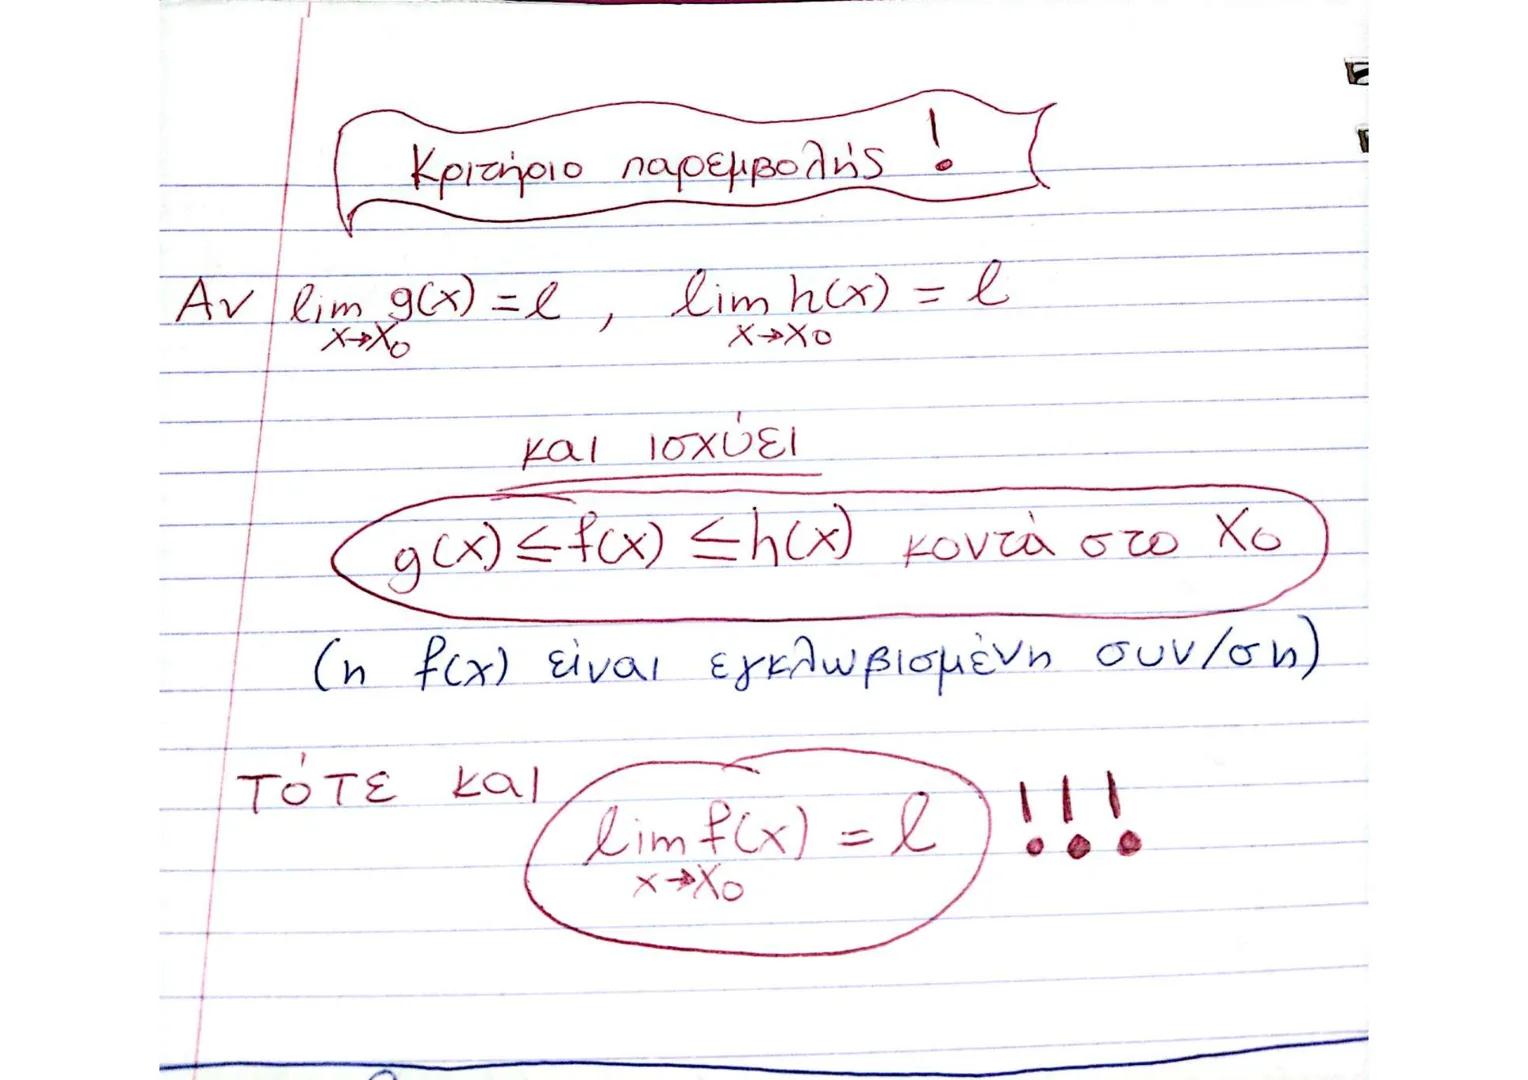 Κριτήριο παρεμβολής !
Αν lim g(x) = l , lim h(x) = l
x→x₀ x→x₀
και ισχύει
g(x) ≤ f(x) ≤ h(x) κοντά στο x₀
(η f(x) είναι εγκλωβισμένη συν/ση)
Τότε και
lim f(x) = l !!!
x→x₀